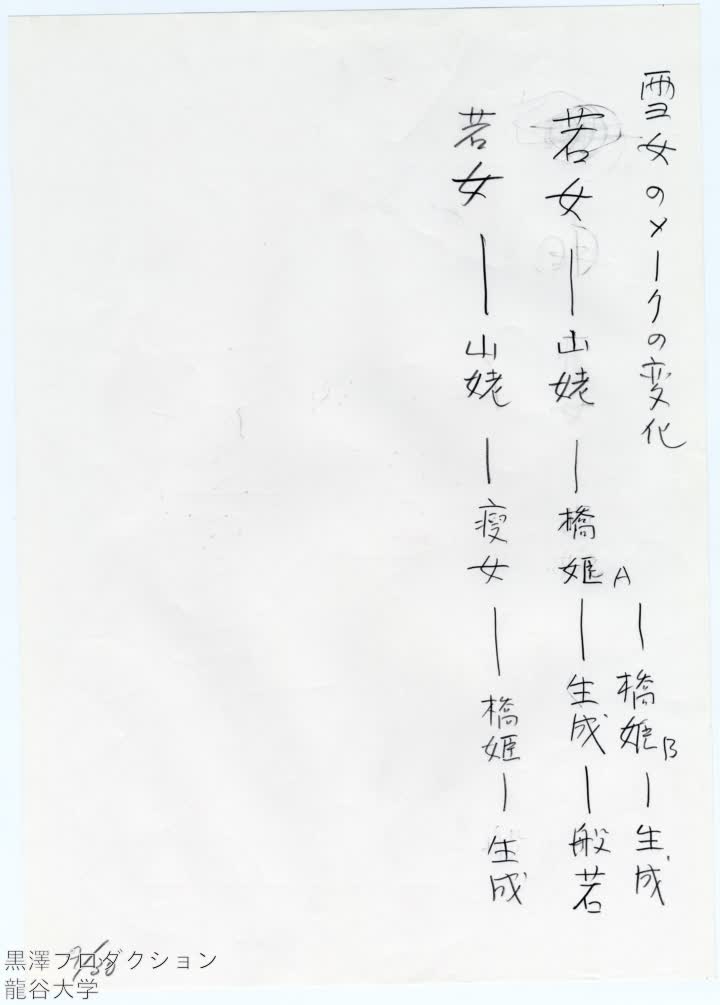 雪女のメークの変化
若女ー山姥ー橋姫Aー橋姫Bー生成
ー生成ー般若
若女ー山姥ー瘦女ー橋姫ー生成
黒澤プロダクション
龍谷大学